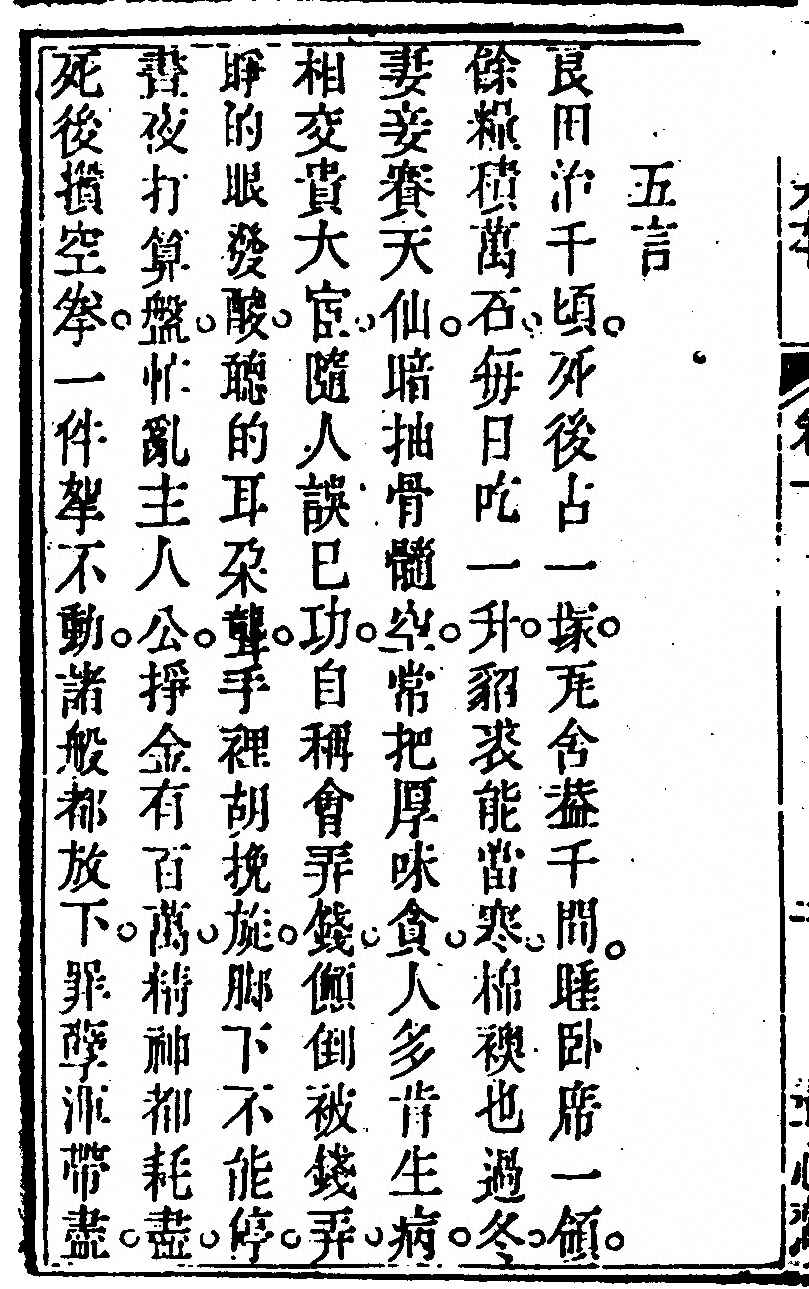 五言
良田治千頃。死後占一塚。瓦舍蓋千間。睡卧席一領。
餘糧積萬石。每日吃一升。貂裘能當寒。棉襖也過冬。
妻妾賽天仙。暗抽骨髓空。常把厚味貪。人多肯生病。
相交貴大宦。隨人誤已功。自稱會弄錢。儱倒被錢弄。
睜的眼發酸。聽的耳朵聾。手裡胡挽旋。脚下不能停。
晝夜打算盤。忙亂主人公。掙金有百萬。精神都耗盡。
死後攢空拳。一件拏不動。諸般都放下。罪孽派帶盡。